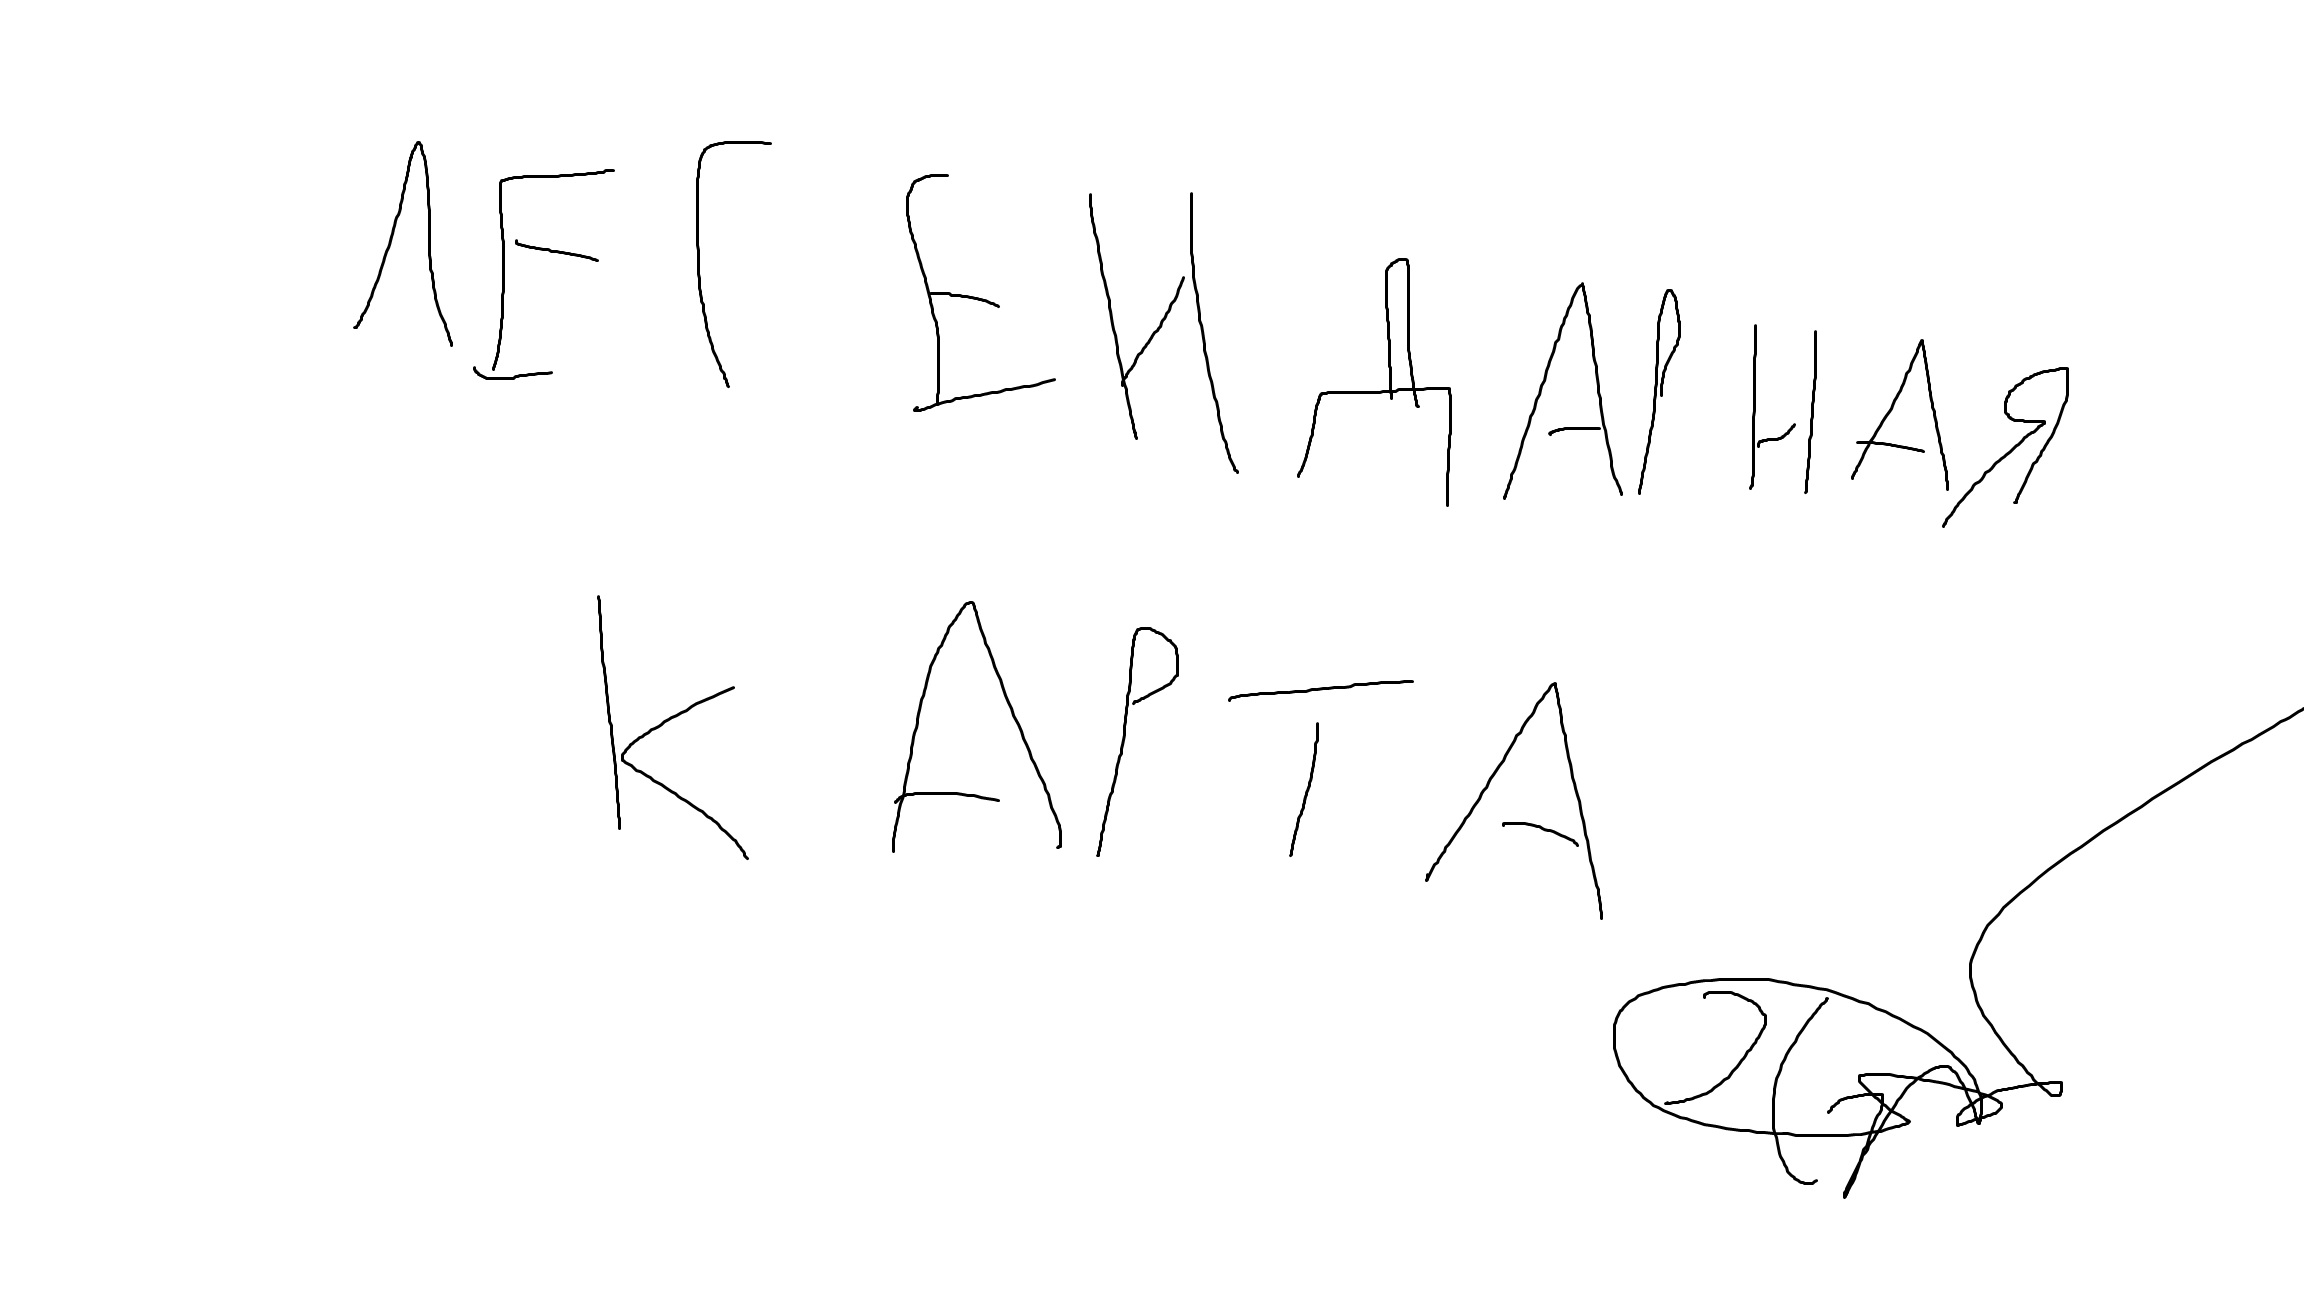 ЛЕГЕНДАРНАЯ
КАРТА